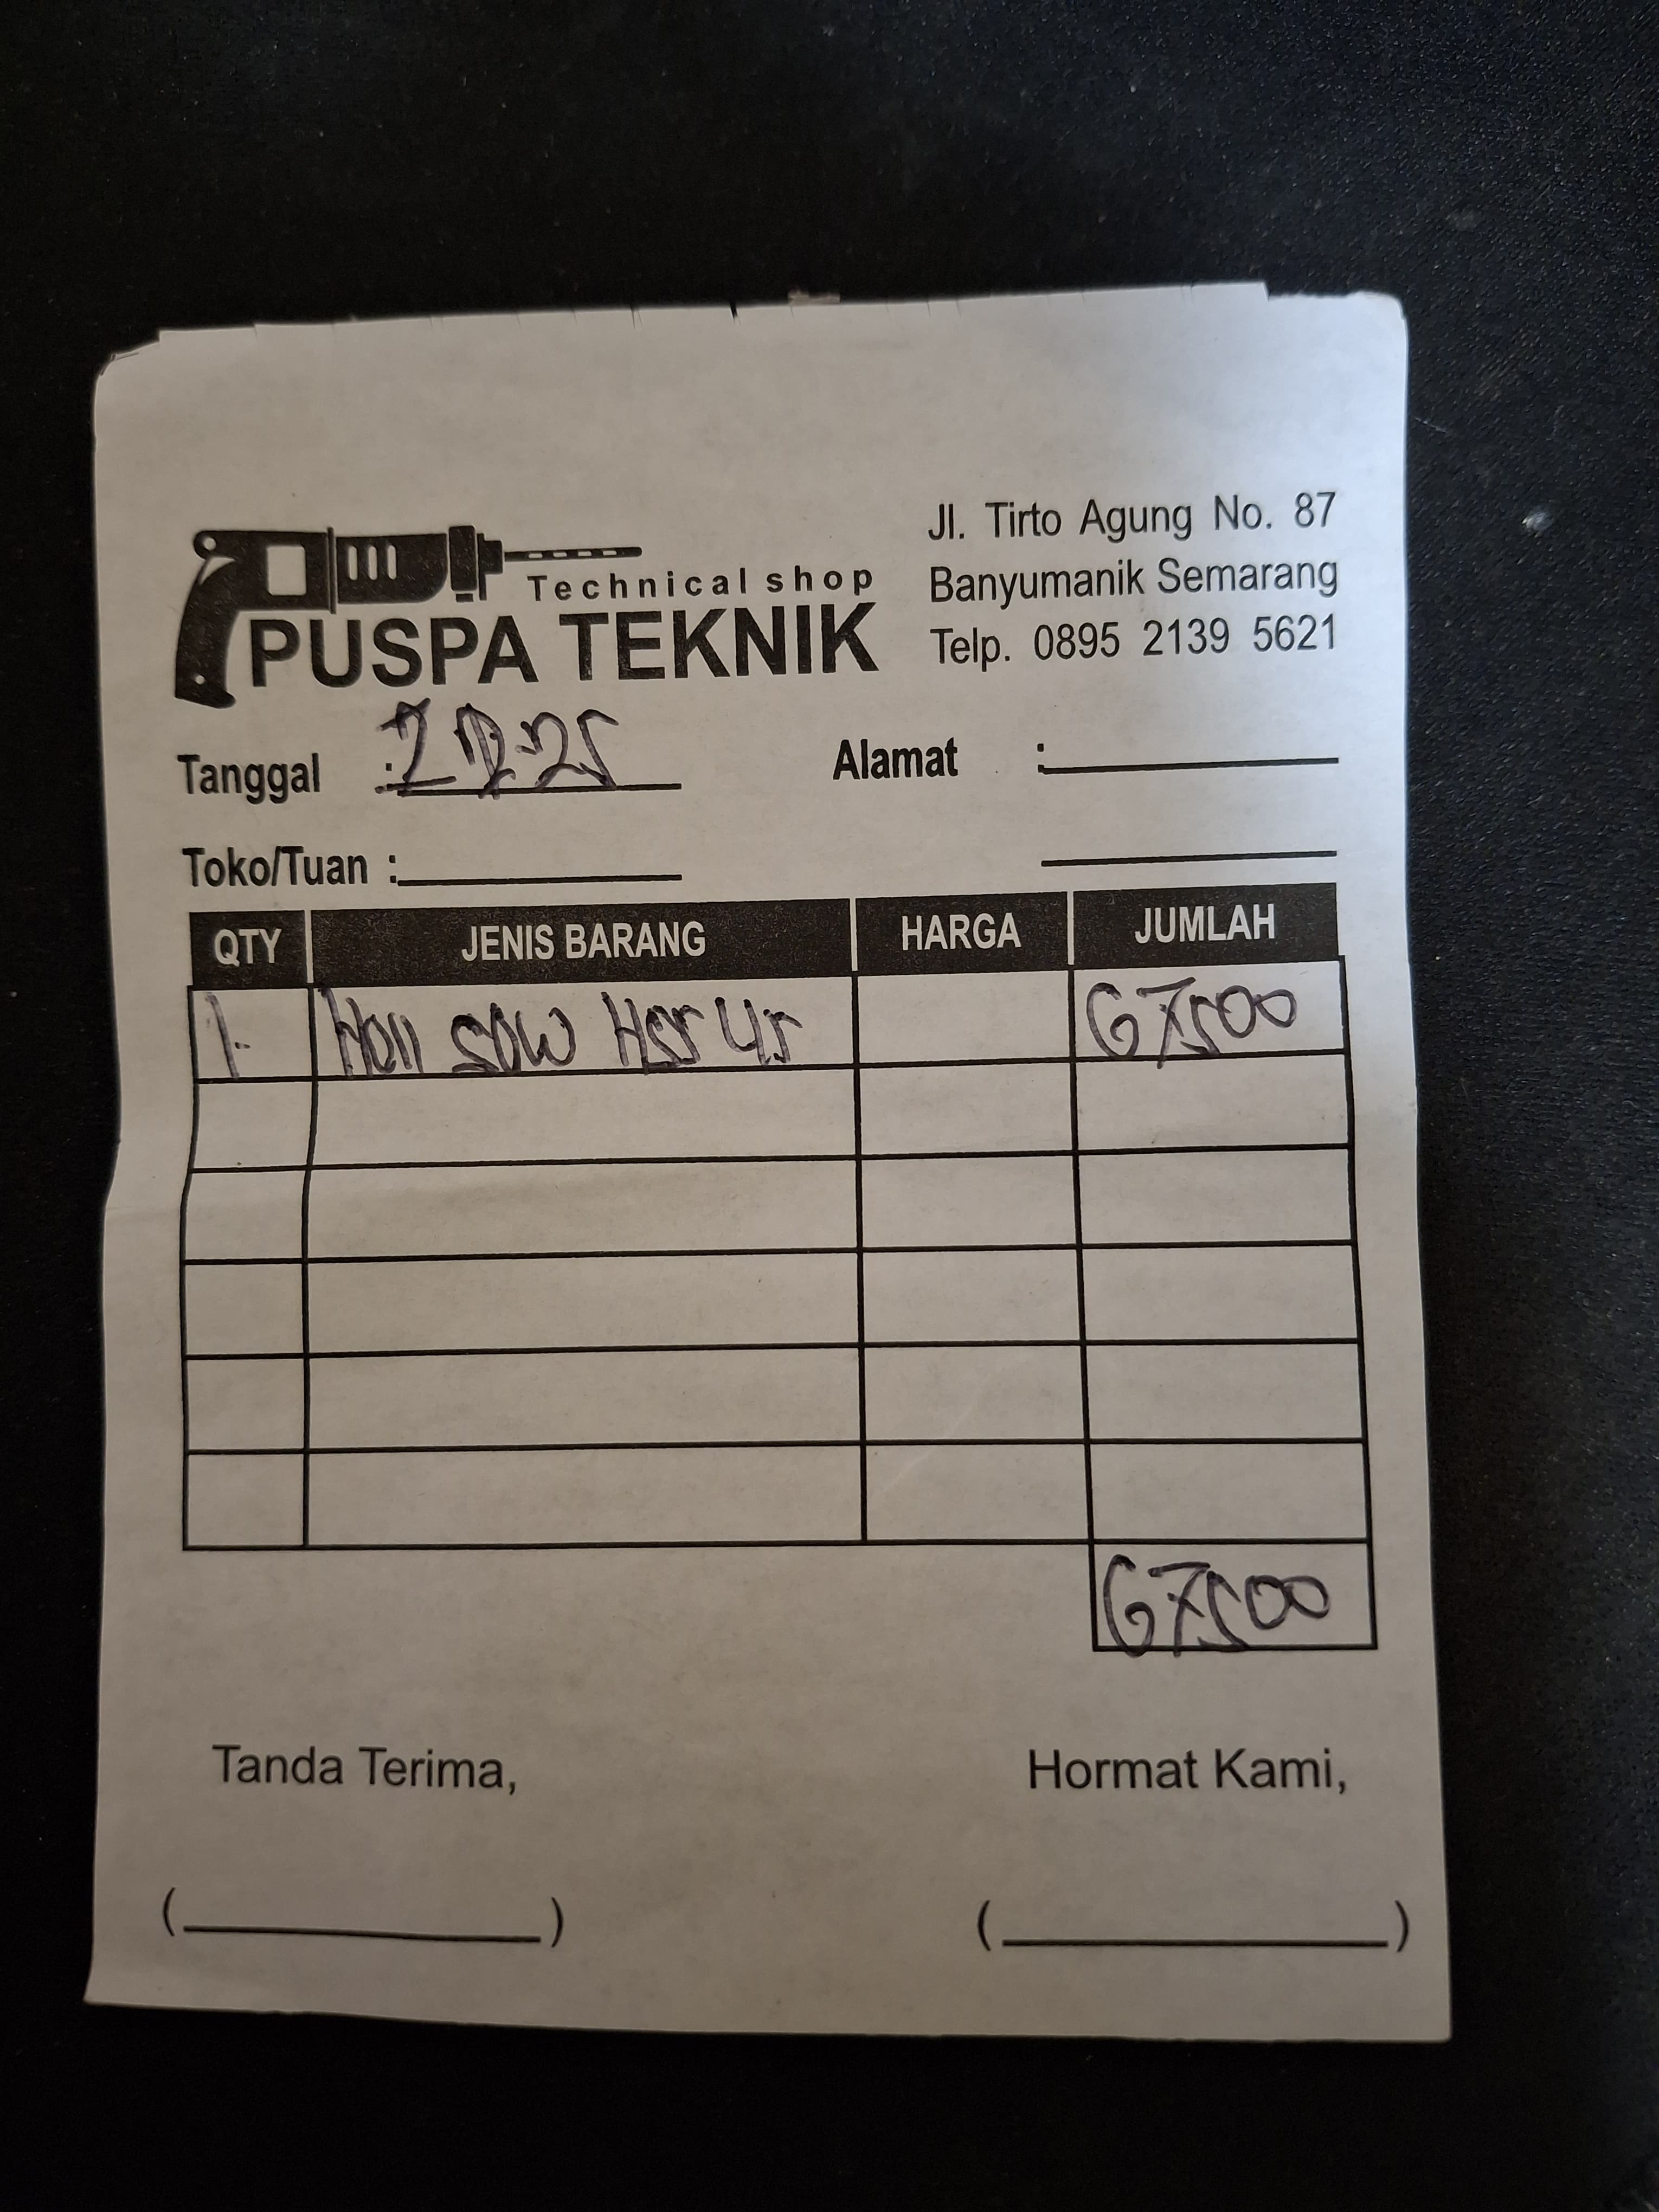 Technical shop
PUSPA TEKNIK
Jl. Tirto Agung No. 87
Banyumanik Semarang
Telp. 0895 2139 5621
Tanggal :
Alamat :
Toko/Tuan :
QTY JENIS BARANG HARGA JUMLAH
1. Holl saw Hss 45 67500
67500
Tanda Terima,
Hormat Kami,
( ) ( )